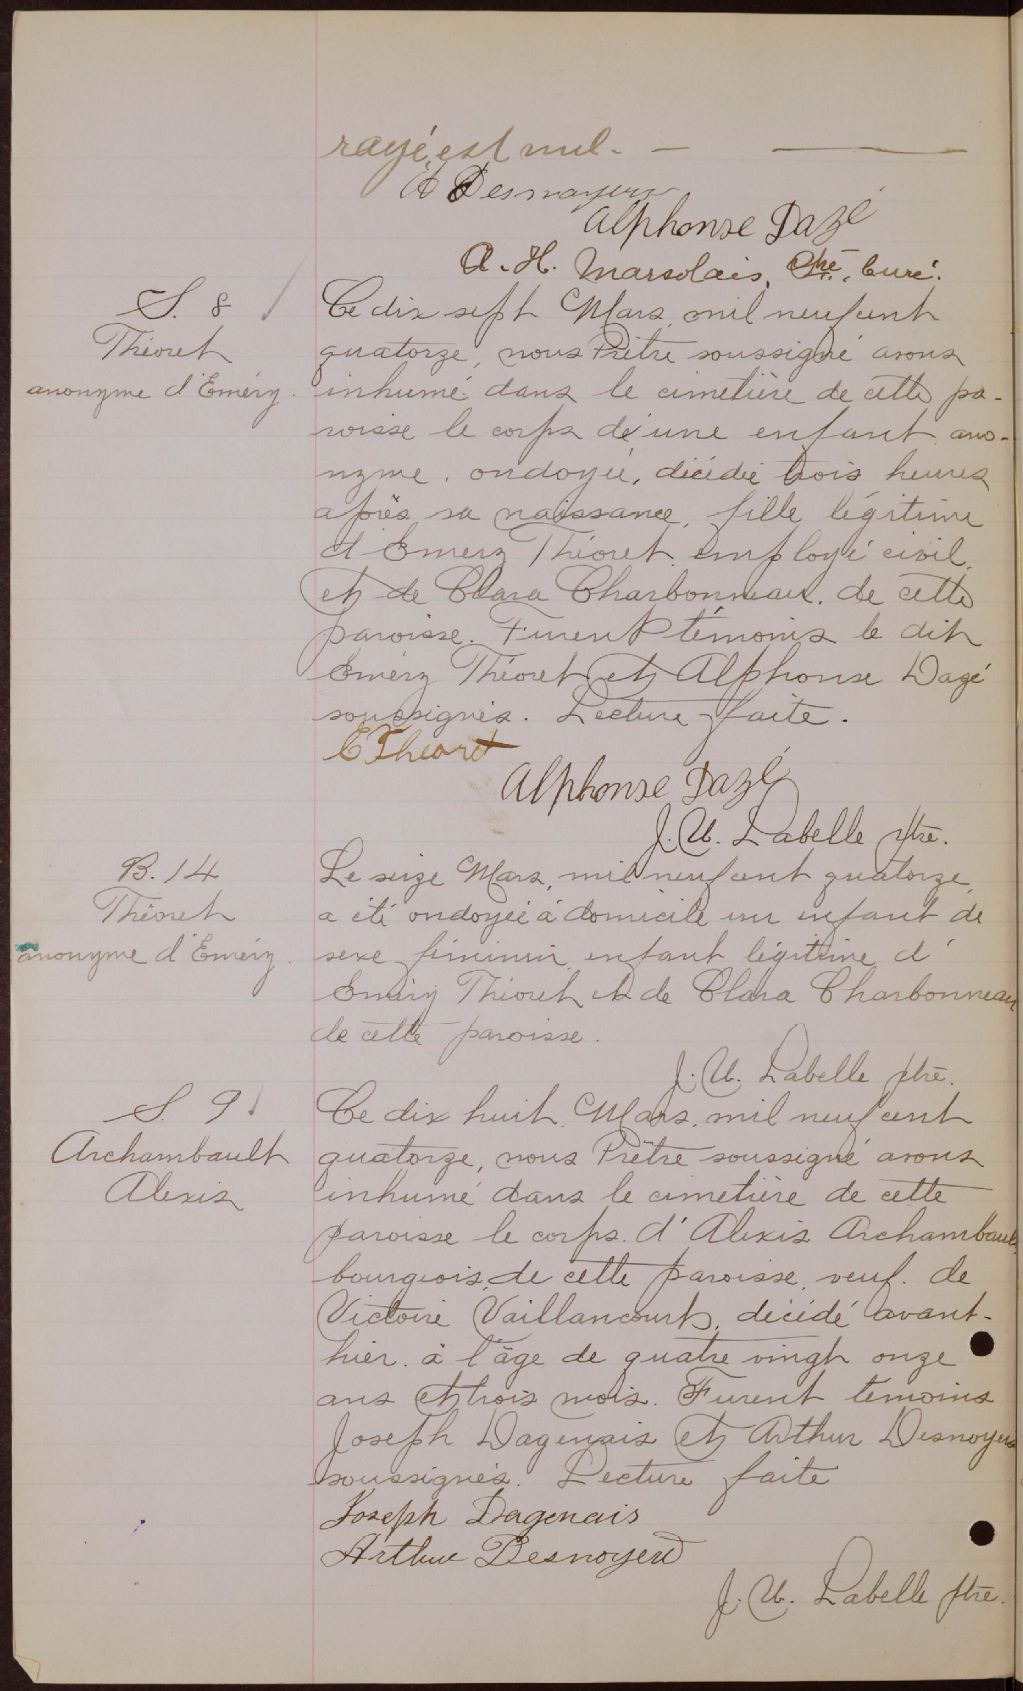 rayé est nul. —
A Desnoyers
Alphonse Dazé
A. H. Marsolais, Ptre, Curé.
S. 8
Théoret
anonyme d'Eméry.
Ce dix sept Mars, mil neuf cent
quatorze, nous Prêtre soussigné avons
inhumé dans le cimetière de cette pa-
roisse le corps de une enfant ano-
nyme, ondoyée, décédée trois heures
après sa naissance, fille légitime
d'Emery Théoret employé civil,
et de Clara Charbonneau, de cette
paroisse. Furent témoins le dit
Eméry Théoret et Alphonse Dagé
soussignés. Lecture faite.
E Theoret
Alphonse Dazé
J. U. Labelle ptre.
B. 14
Théoret
anonyme d'Eméry.
Le seize Mars, mil neuf cent quatorze,
a été ondoyée à domicile un enfant de
sexe féminin, enfant légitime d'
Eméry Théoret et de Clara Charbonneau
de cette paroisse.
J. U. Labelle ptre.
S. 9
Archambault
Alexis
Ce dix huit Mars, mil neuf cent
quatorze, nous Prêtre soussigné avons
inhumé dans le cimetière de cette
paroisse le corps d'Alexis Archambault
bourgeois, de cette paroisse, veuf de
Victoire Vaillancourt, décédé avant-
hier, à l'âge de quatre vingt onze
ans et trois mois. Furent témoins
Joseph Dagenais et Arthur Desnoyers
soussignés. Lecture faite
Joseph Dagenais
Arthur Desnoyers
J. U. Labelle ptre.